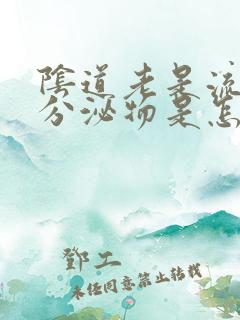 陰道老是流
分泌物是怎
鄧工
未经同意禁止转载